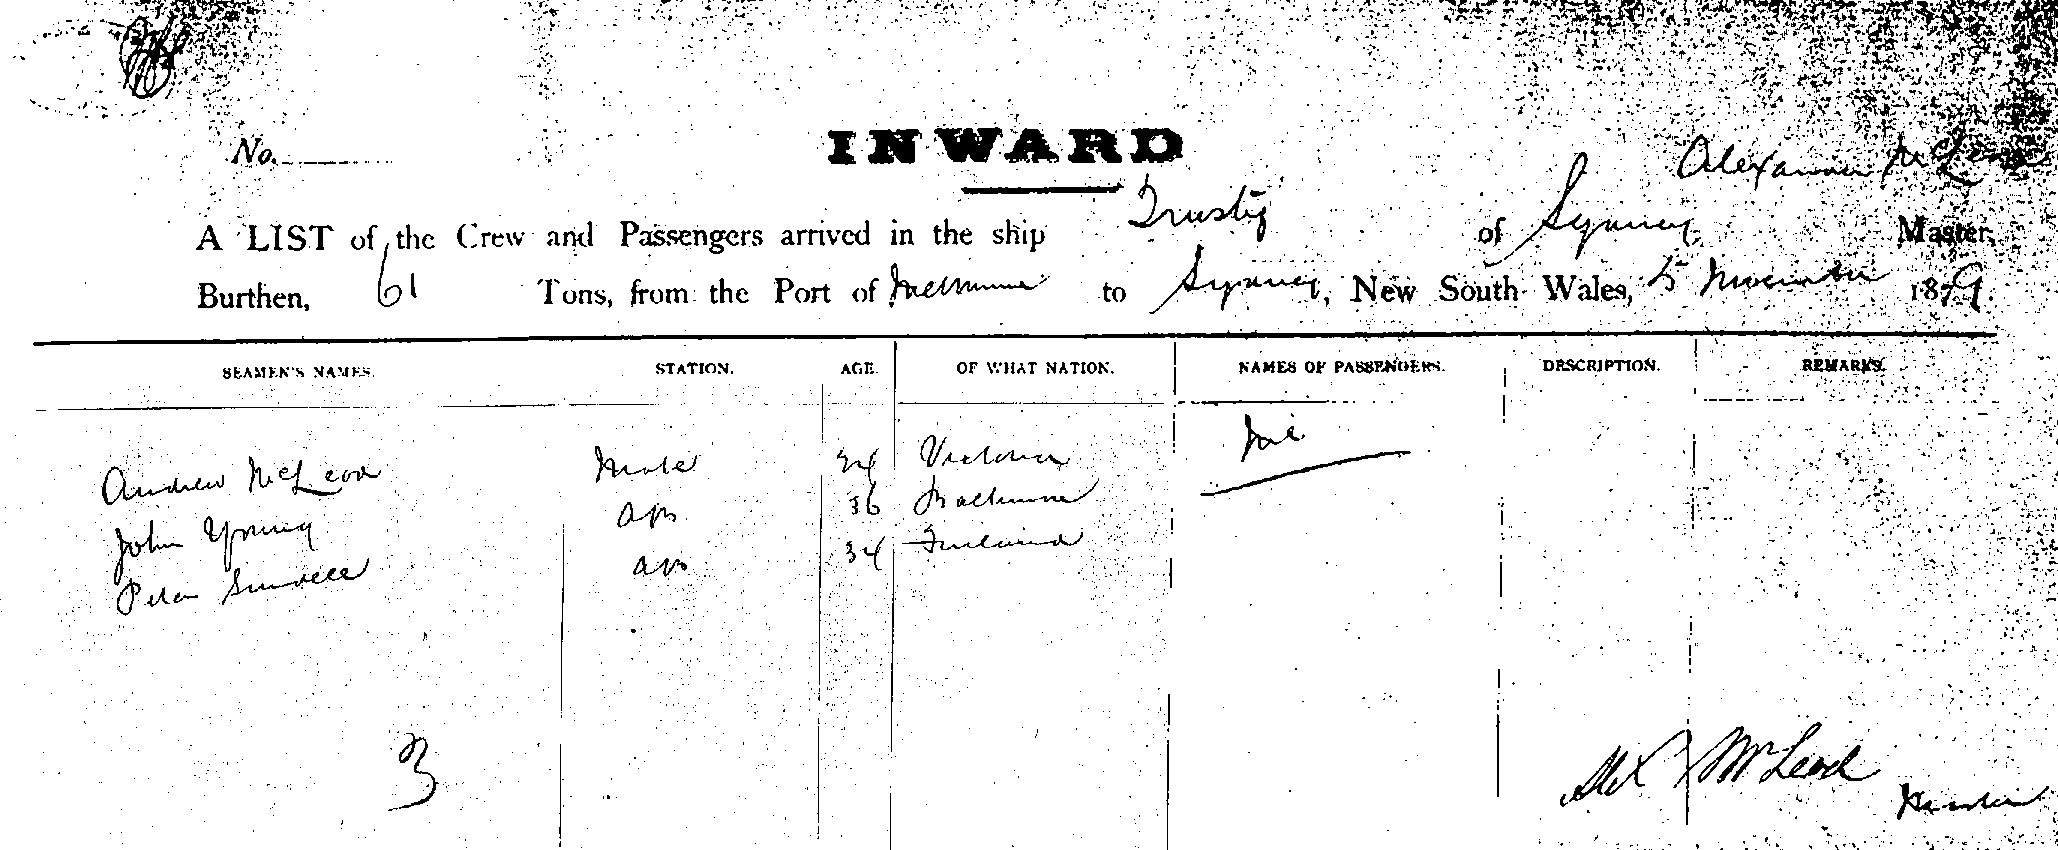 No.
INWARD
Alexander McLeod
A LIST of the Crew and Passengers arrived in the ship Trusty of Sydney Master,
Burthen, 61 Tons, from the Port of Melbourne to Sydney, New South Wales, 5 November 1879.
SEAMEN'S NAMES. STATION. AGE. OF WHAT NATION. NAMES OF PASSENGERS. DESCRIPTION. REMARKS.
Andrew McLeod Mate 24 Victoria Nil
John Young AB 36 Melbourne
Peter AB 34 Finland
3
Alex McLeod
Master